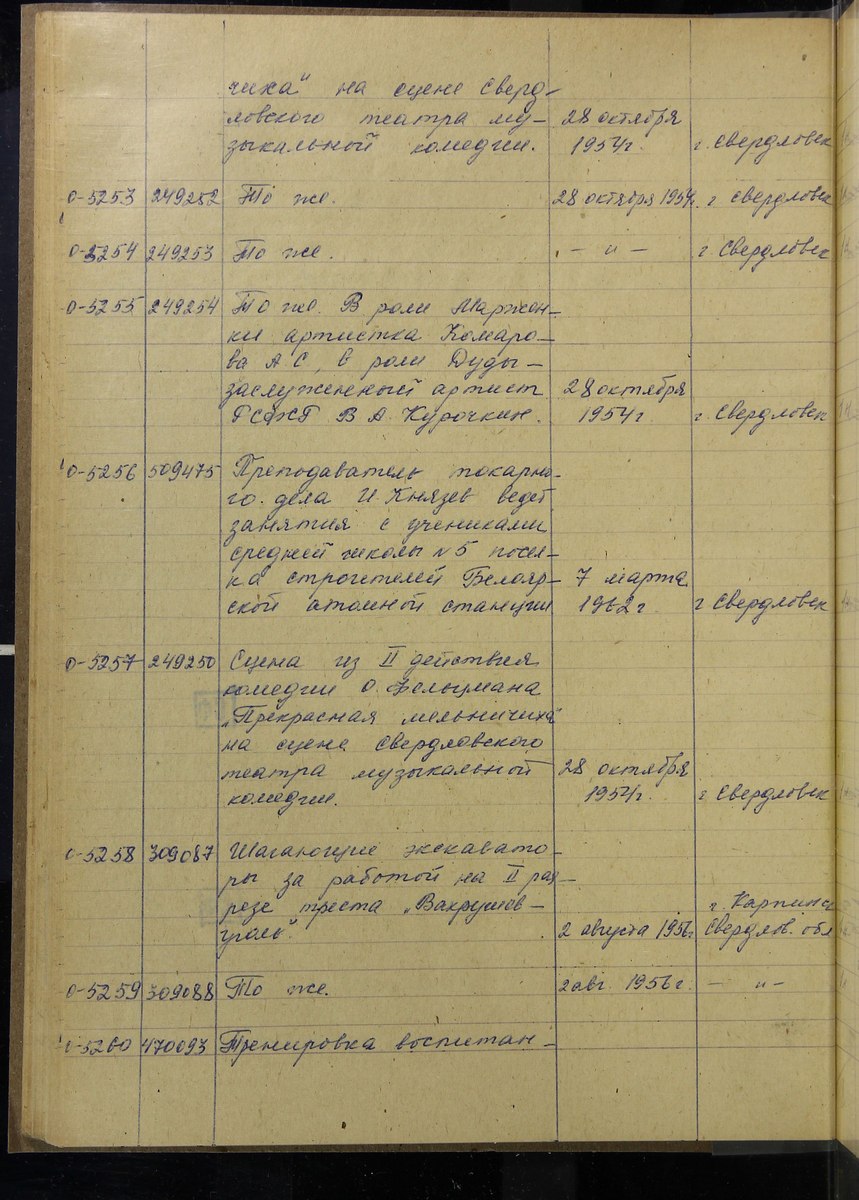 чиха" на сцене Сверд-
ловского театра му- 28 октября
зыкальной комедии. 1954г. г. Свердловск
0-5253 249252 То же. 28 октября 1954г. г Свердловск
0-5254 249253 То же. - и - г. Свердловск
0-5255 249254 То же. В роли Маржен-
ки артистка Комаро-
ва А С, в роли Дуды -
заслуженный артист 28 октября
РСФСР В А. Курочкин. 1954г г. Свердловск
0-5256 509475 Преподаватель токарно-
го дела И. Князев ведет
занятия с учениками
средней школы N5 посел-
ка строителей Белояр- 7 марта
ской атомной станции 1962г. г Свердловск
0-5257 249250 Сцена из II действия
комедии О. Фельцмана
„Прекрасная мельничиха"
на сцене Свердловского
театра музыкальной 28 октября
комедии. 1954г. г Свердловск
0-5258 309087 Шагающие экскавато-
ры за работой на II раз-
резе треста „Вахрушев- г. Карпинск
уголь". 2 августа 1956г Свердлов. обл
0-5259 309088 То же. 2 авг. 1956г. - и -
0-5260 470093 Тренировка воспитан-